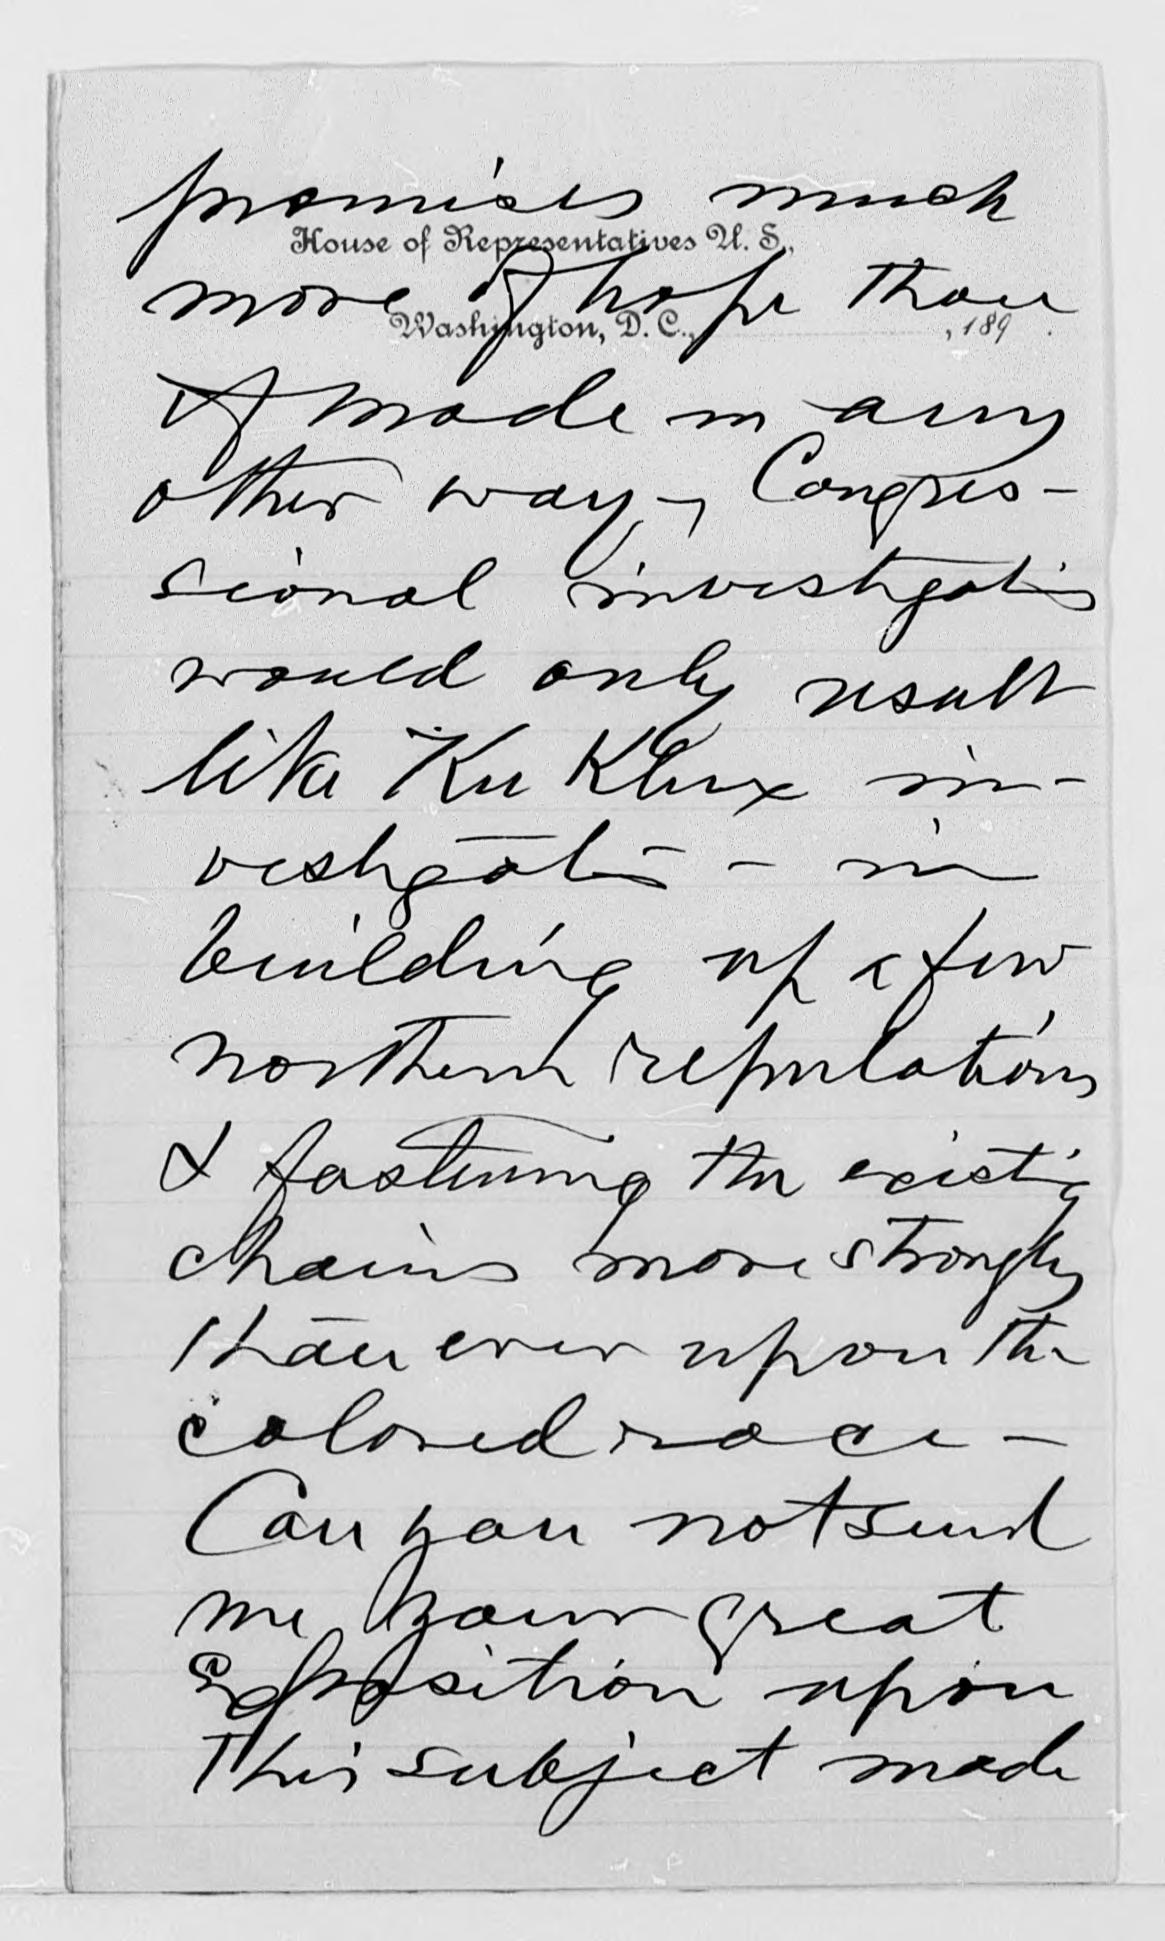 promises much
House of Representatives U. S.,
more of hope than
Washington, D. C., , 189 .
if made in any
other way -, Congres-
sional investigation
would only result
like Ku Klux in-
vestigation - in
building up a few
northern reputations
& fastening the existing
chains more strongly
than ever upon the
colored race -
Can you not send
me your great
Exposition upon
this subject made